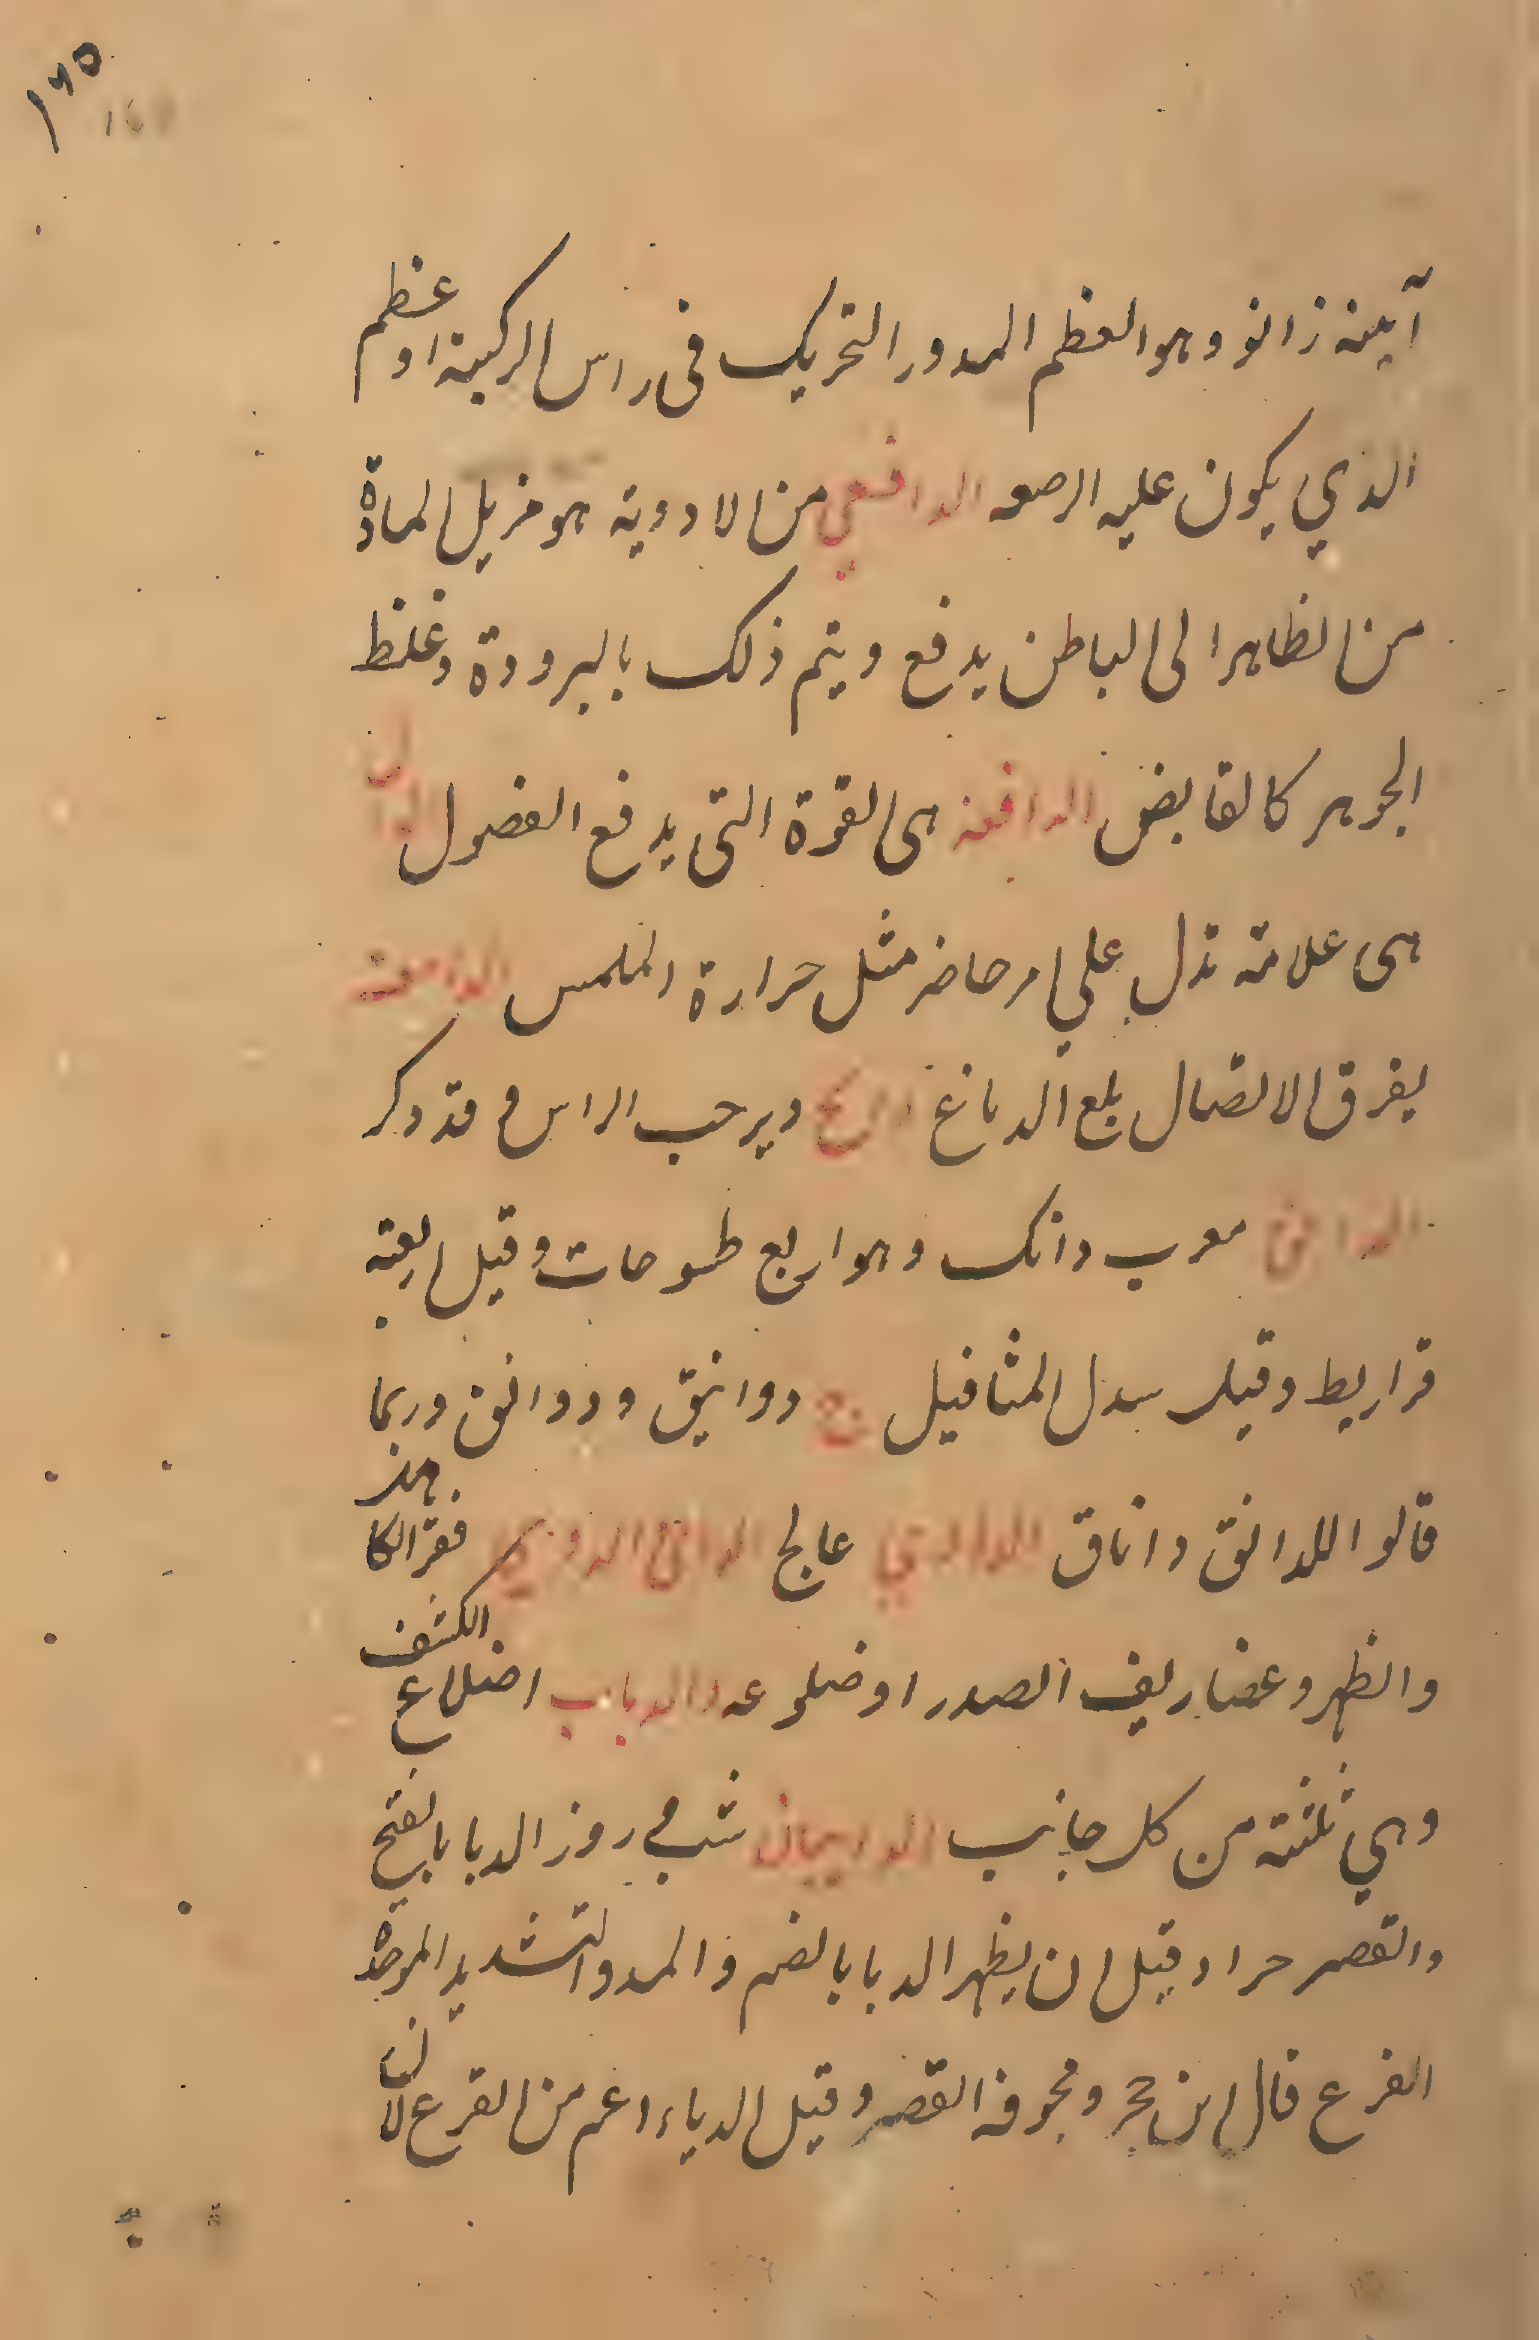 ۱۶۵
آيينه زانو وهو العظم المدور التحريك فى راس الركبة او عظم
الذي يكون عليه الرصعه الدافع من الادوية هو مزيل المادة
من الظاهر الى الباطن يدفع ويتم ذلك بالبرودة وغلظ
الجوهر كالقابض الدافعه هى القوة التى يدفع الفضول الدال
هى علامة تدل على امر حاضر مثل حرارة الملمس الدامغه
يفرق الاتصال بلغ الدماغ ويرحب الراس وقد ذكر
الدانق معرب دانك وهو اربع طسوجات وقيل اربعة
قراريط وقيل سدس المثاقيل ج دوانيق ودوانق وربما
قالوا للدانق داناق عالج فقر الكاهل
والظهر وغضاريف الصدر او ضلوعه والدباب اضلاع الكتف
وهي ثلثة من كل جانب شب فى روز الدبا بالفتح
والقصر جراد قبل ان يظهر الدبا بالضم والمد والتشديد الموحدة
القرع قال ابن حجر ومجوفه القصر وقيل الدباء اعم من القرع لان